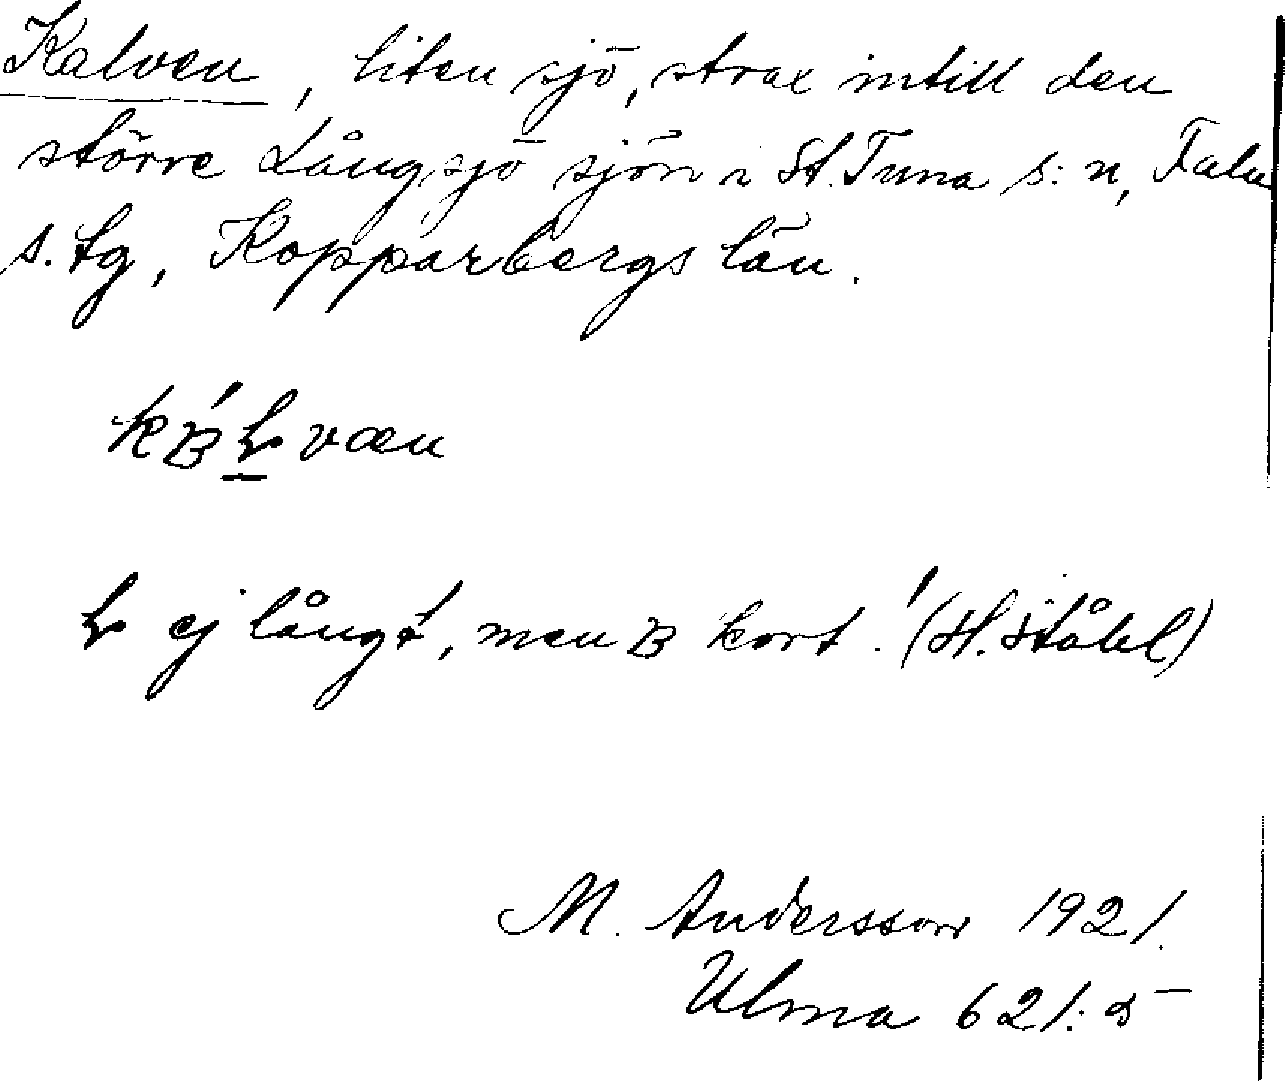 Kalven, liten sjö, strax intill den
större Långsjö sjön i St. Tuna s:n, Falu
s. tg, Kopparbergs län.
kʙ́ɫ̱væn
ɫ ej långt, men ʙ kort! (H. Ståhl)
M. Andersson 1921.
Ulma 621:5